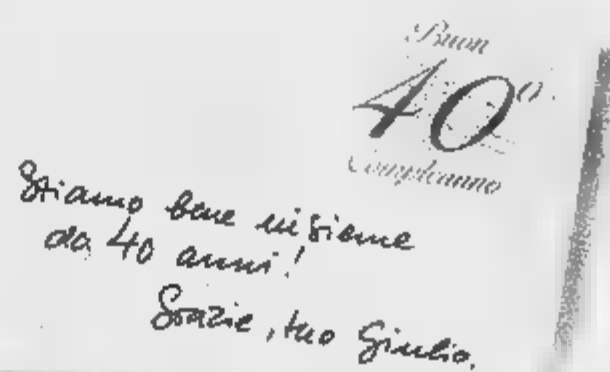 Buon
40º
Compleanno
Stiamo bene insieme
da 40 anni!
Grazie, tuo Giulio.